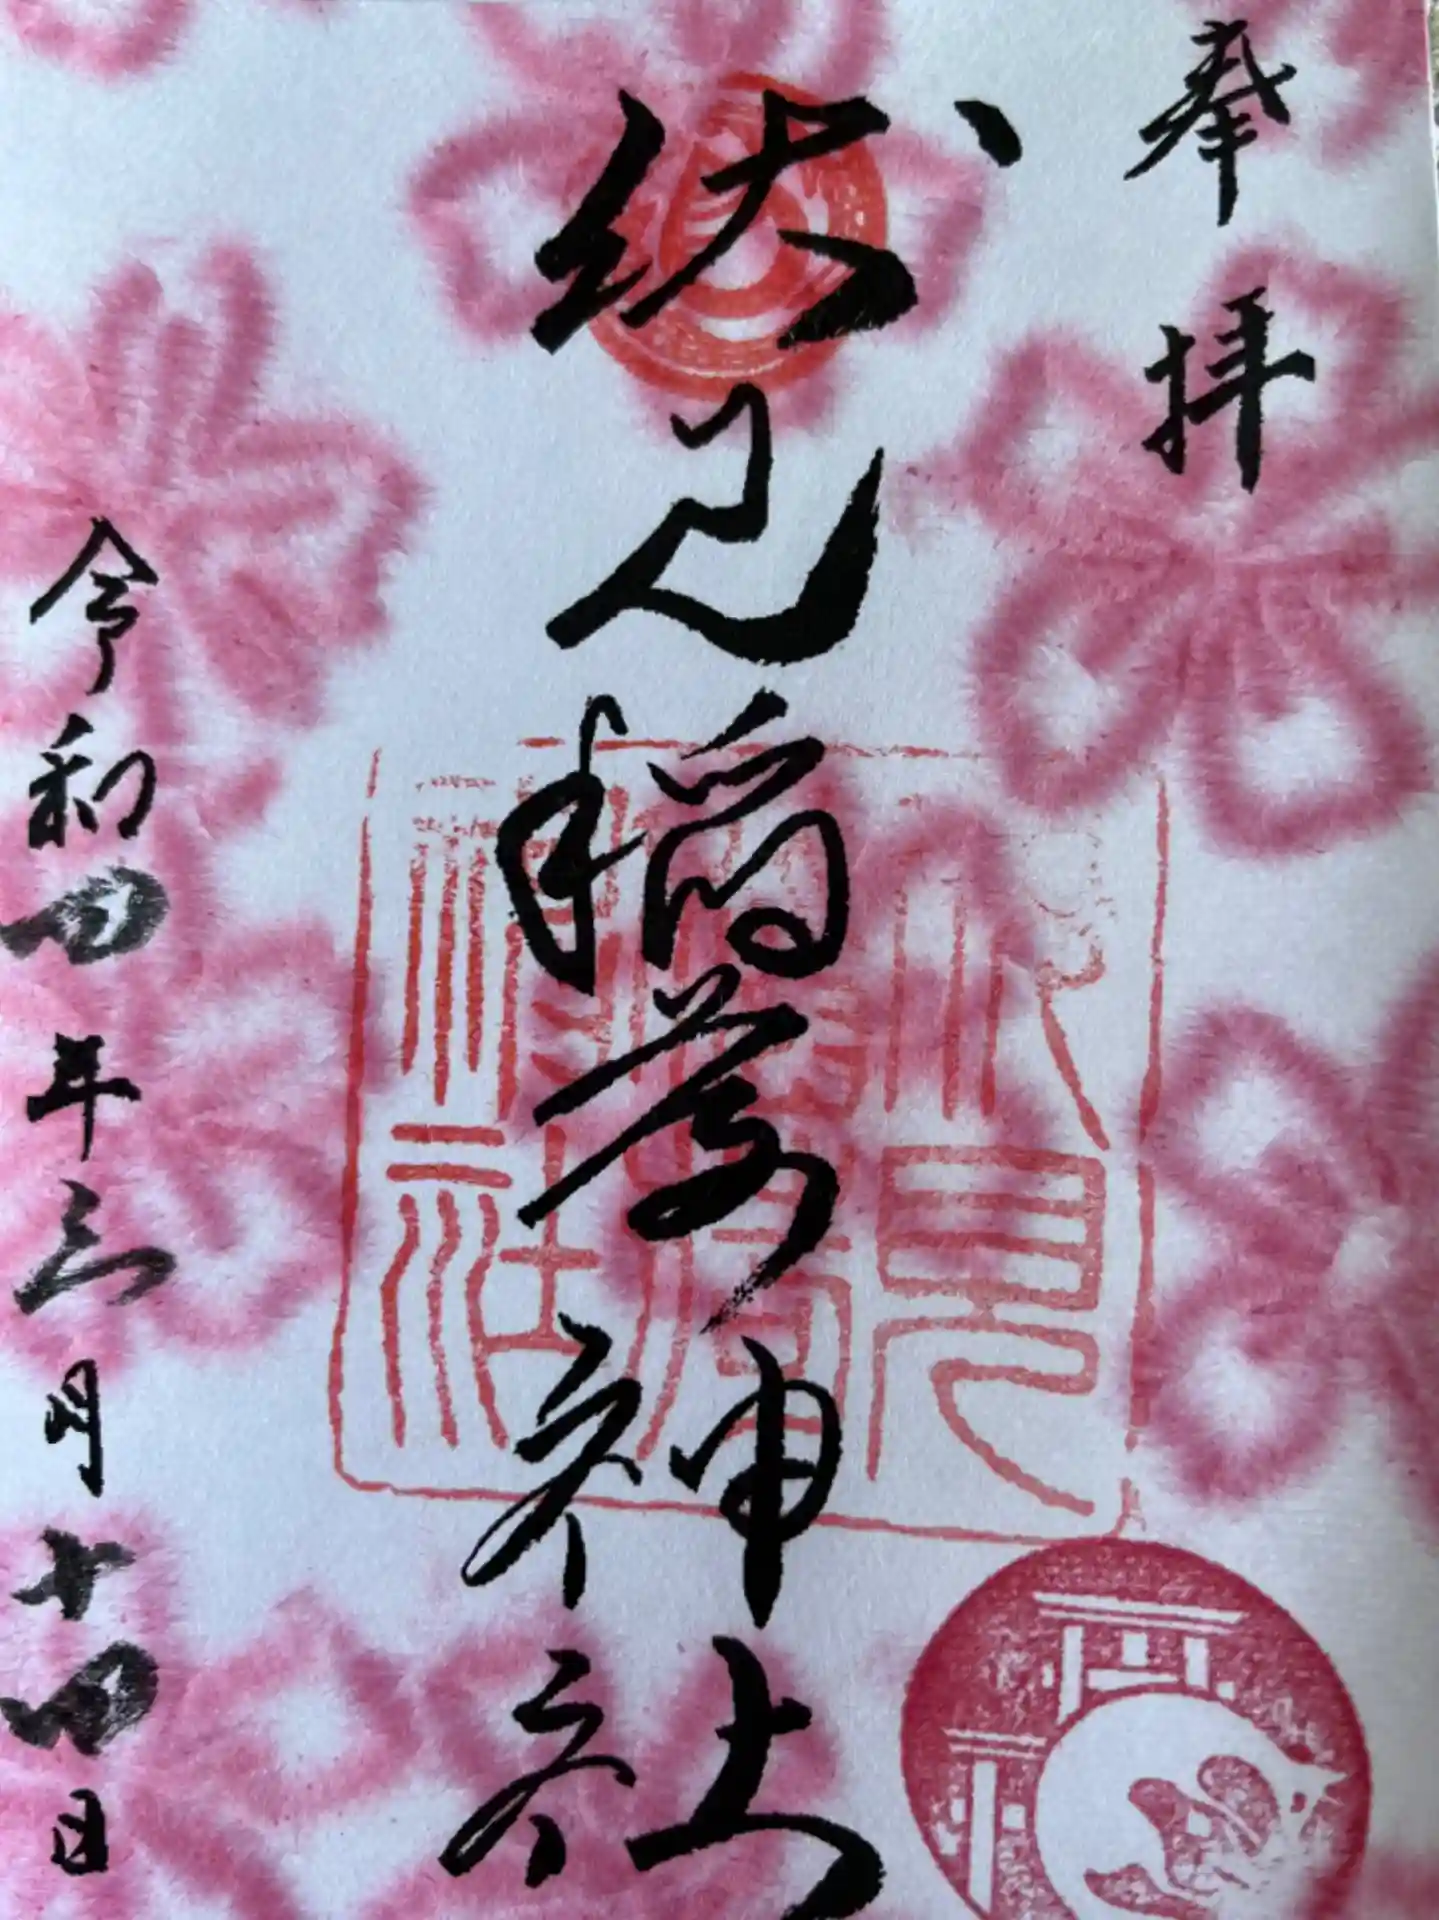 奉拝
伏見稲荷神社
伏見
稲荷
神社
令和四年三月十四日